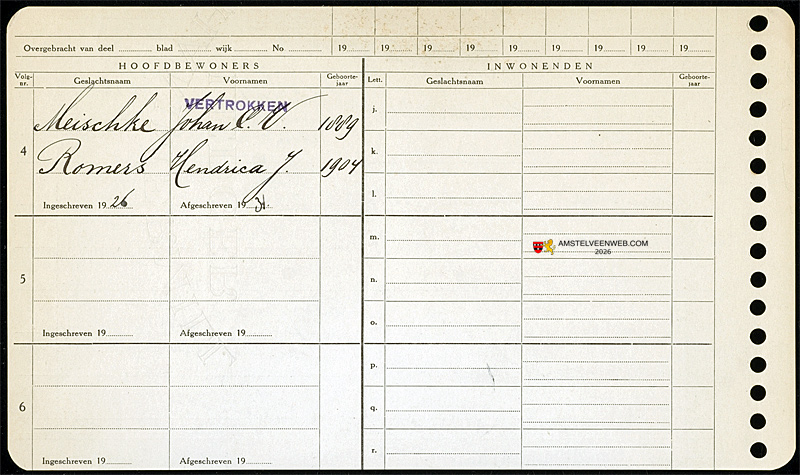 Overgebracht van deel ............ blad ............ wijk ............ No ............ 19.... 19.... 19.... 19.... 19.... 19.... 19.... 19.... 19....
HOOFDBEWONERS INWONENDEN
Volg-nr. Geslachtsnaam Voornamen Geboorte-jaar Lett. Geslachtsnaam Voornamen Geboorte-jaar
VERTROKKEN
j.
4
Meischke Johan C. V. 1889
k.
Romers Hendrica J. 1904
l.
Ingeschreven 1926 Afgeschreven 1931.
m.
AMSTELVEENWEB.COM
2026
5
n.
o.
Ingeschreven 19........ Afgeschreven 19........
p.
6
q.
r.
Ingeschreven 19........ Afgeschreven 19........